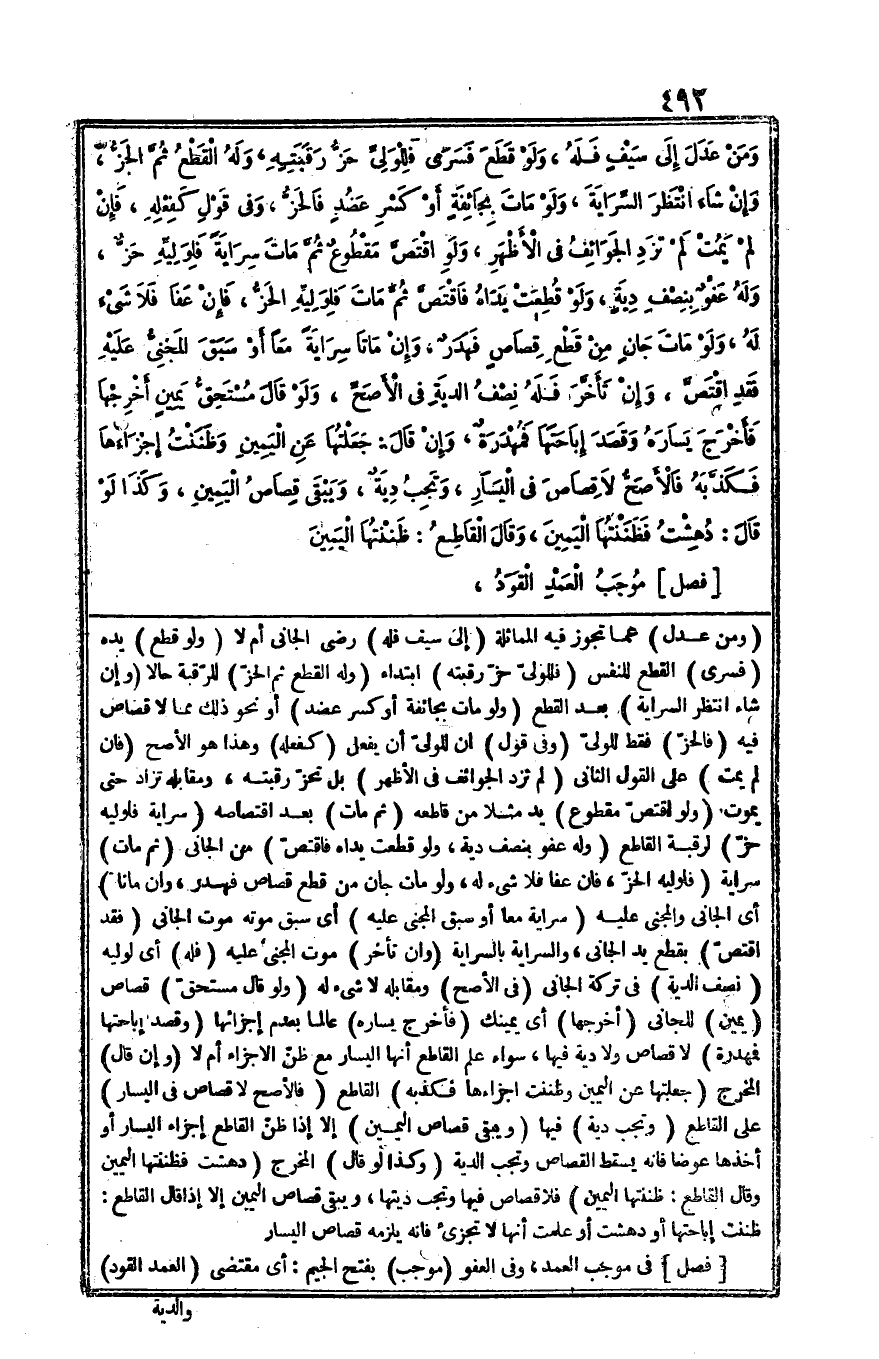 ٤٩٢
وَمَنْ عَدَلَ إِلَى سَيْفٍ فَلَهُ ، وَلَوْ قَطَعَ فَسَرَى فَلِلْوَلِيِّ حَزُّ رَقَبَتِهِ ، وَلَهُ الْقَطْعُ ثُمَّ الْحَزُّ ،
وَإِنْ شَاءَ انْتَظَرَ السِّرَايَةَ ، وَلَوْ مَاتَ بِجَائِفَةٍ أَوْ كَسْرِ عَضُدٍ فَالْحَزُّ ، وَفِى قَوْلٍ كَفِعْلِهِ ، فَإِنْ
لَمْ يَمُتْ لَمْ تُزَدِ الْجَوَائِفُ فِى الْأَظْهَرِ ، وَلَوِ اقْتَصَّ مَقْطُوعٌ ثُمَّ مَاتَ سِرَايَةً فَلِوَلِيِّهِ حَزٌّ ،
وَلَهُ عَفْوٌ بِنِصْفِ دِيَةٍ ، وَلَوْ قُطِعَتْ يَدَاهُ فَاقْتَصَّ ثُمَّ مَاتَ فَلِوَلِيِّهِ الْحَزُّ ، فَإِنْ عَفَا فَلَا شَىْءَ
لَهُ ، وَلَوْ مَاتَ جَانٍ مِنْ قَطْعِ قِصَاصٍ فَهَدَرٌ ، وَإِنْ مَاتَا سِرَايَةً مَعًا أَوْ سَبَقَ الْمَجْنِىُّ عَلَيْهِ
فَقَدِ اقْتَصَّ ، وَإِنْ تَأَخَّرَ فَلَهُ نِصْفُ الدِّيَةِ فِى الْأَصَحِّ ، وَلَوْ قَالَ مُسْتَحِقُّ يَمِينٍ أَخْرِجْهَا
فَأَخْرَجَ يَسَارَهُ وَقَصَدَ إِبَاحَتَهَا فَمُهْدَرَةٌ ، وَإِنْ قَالَ : جَعَلْتُهَا عَنِ الْيَمِينِ وَظَنَنْتُ إِجْزَاءَهَا
فَكَذَّبَهُ فَالْأَصَحُّ لَا قِصَاصَ فِى الْيَسَارِ ، وَتَجِبُ دِيَةٌ ، وَيَبْقَى قِصَاصُ الْيَمِينِ ، وَكَذَا لَوْ
قَالَ : دُهِشْتُ فَظَنَنْتُهَا الْيَمِينَ ، وَقَالَ الْقَاطِعُ : ظَنَنْتُهَا الْيَمِينَ
[ فصل ] مُوجَبُ الْعَمْدِ الْقَوَدُ ،
( ومن عدل ) عما تجوز فيه المماثلة ( إلى سيف فله ) رضى الجانى أم لا ( ولو قطع ) يده
( فسرى ) القطع للنفس ( فللولىّ حزّ رقبته ) ابتداء ( وله القطع ثم الحزّ ) للرقبة حالا ( وإن
شاء انتظر السراية ) بعد القطع ( ولو مات بجائفة أو كسر عضد ) أو نحو ذلك مما لا قصاص
فيه ( فالحزّ ) فقط للولىّ ( وفى قول ) ان للولىّ أن يفعل ( كفعله ) وهذا هو الأصح ( فان
لم يمت ) على القول الثانى ( لم تزد الجوائف فى الأظهر ) بل تحزّ رقبته ، ومقابله تزاد حتى
يموت ( ولو اقتصّ مقطوع ) يد مثلا من قاطعه ( ثم مات ) بعد اقتصاصه ( سراية فلوليه
حزّ ) لرقبة القاطع ( وله عفو بنصف دية ، ولو قطعت يداه فاقتصّ ) من الجانى ( ثم مات )
سراية ( فلوليه الحزّ ، فان عفا فلا شىء له ، ولو مات جان من قطع قصاص فهدر ، وان ماتا )
أى الجانى والمجنى عليه ( سراية معا أو سبق المجنى عليه ) أى سبق موته موت الجانى ( فقد
اقتصّ ) بقطع يد الجانى ، والسراية بالسراية ( وان تأخر ) موت المجنى عليه ( فله ) أى لوليه
( نصف الدية ) فى تركة الجانى ( فى الأصح ) ومقابله لا شىء له ( ولو قال مستحقّ ) قصاص
( يمين ) للجانى ( أخرجها ) أى يمينك ( فأخرج يساره ) عالما بعدم إجزائها ( وقصد إباحتها
فهدرة ) لا قصاص ولا دية فيها ، سواء علم القاطع أنها اليسار مع ظنّ الاجزاء أم لا ( وإن قال )
المخرج ( جعلتها عن اليمين وظننت اجزاءها فكذبه ) القاطع ( فالأصح لا قصاص فى اليسار )
على القاطع ( وتجب دية ) فيها ( ويبقى قصاص اليمين ) إلا إذا ظنّ القاطع إجزاء اليسار أو
أخذها عوضا فانه يسقط القصاص وتجب الدية ( وكذا لو قال ) المخرج ( دهشت فظننتها اليمين
وقال القاطع : ظننتها اليمين ) فلا قصاص فيها وتجب ديتها ، ويبقى قصاص اليمين إلا إذا قال القاطع :
ظننت إباحتها أو دهشت أو علمت أنها لا تجزىء فانه يلزمه قصاص اليسار
[ فصل ] فى موجب العمد ، وفى العفو ( موجب ) بفتح الجيم : أى مقتضى ( العمد القود )
والدية